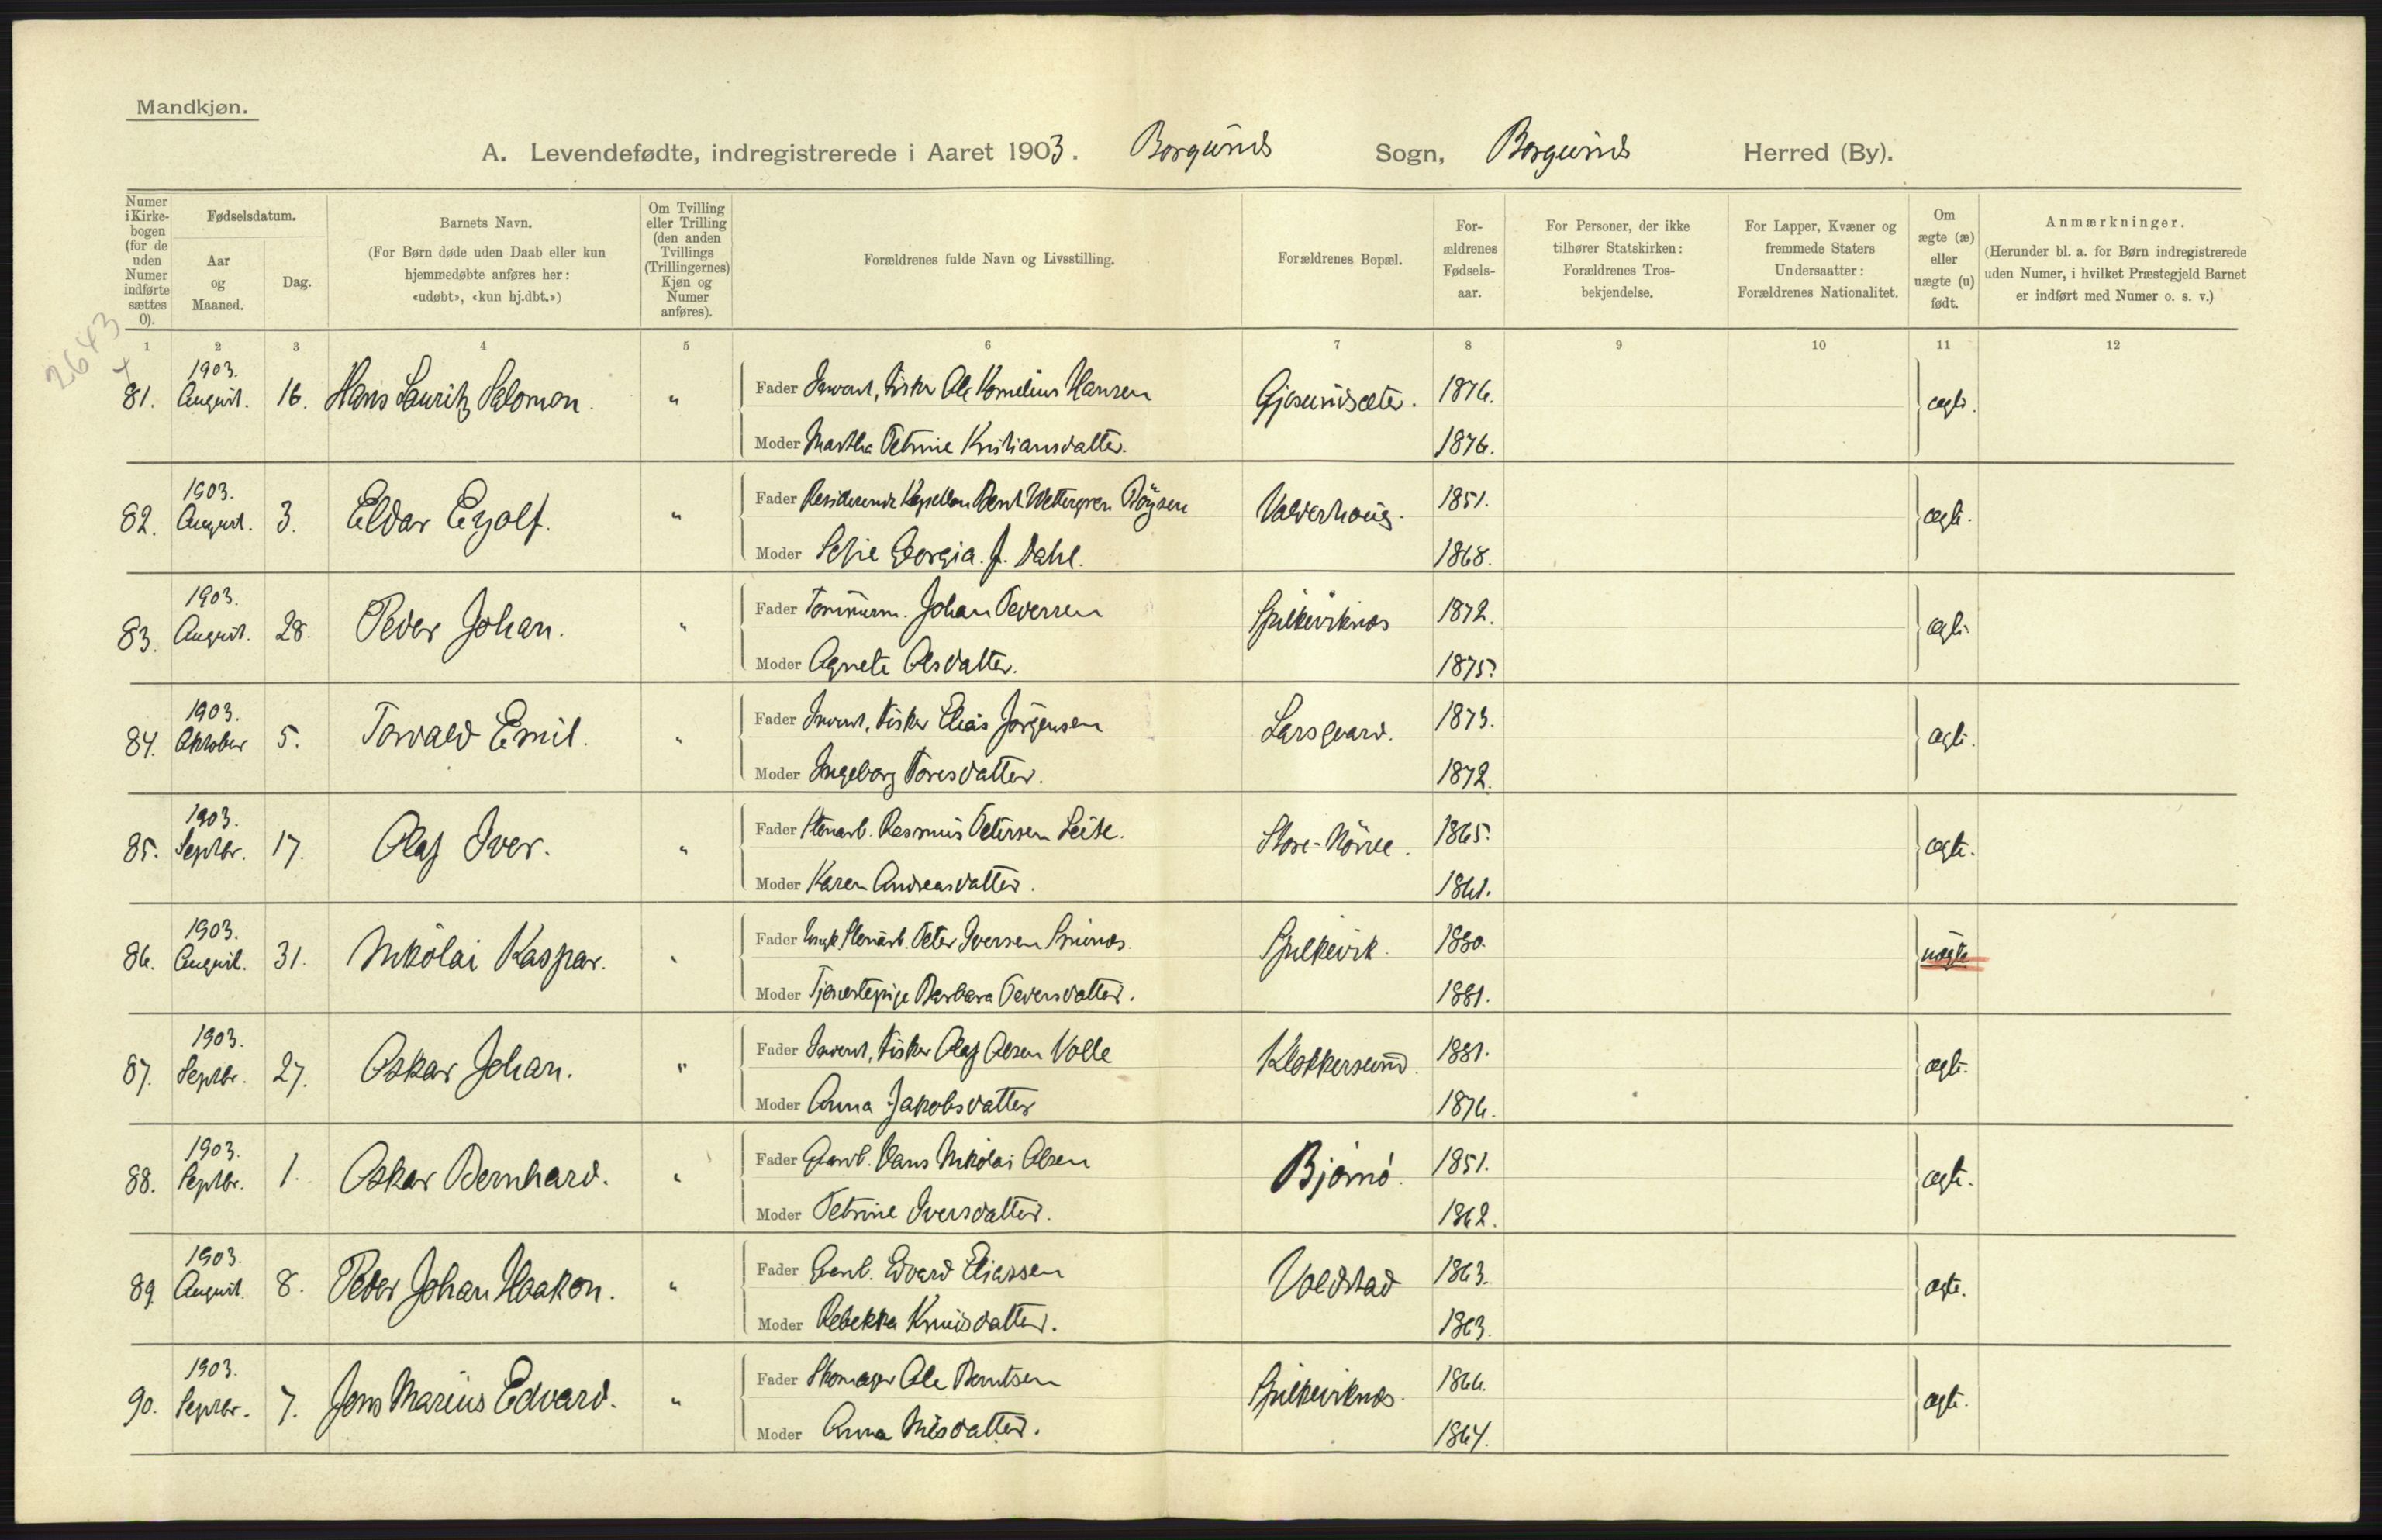 Mandkjøn.
A. Levendefødte, indregistrerede i Aaret 1903. Borgunds Sogn, Borgunds Herred (By).
Numer i Kirke-bogen (for de uden Numer indførte sættes 0).
Fødselsdatum.
Aar og Maaned.
Dag.
Barnets Navn.
(For Børn døde uden Daab eller kun hjemmedøbte anføres her: «udøbt», «kun hj.dbt.»)
Om Tvilling eller Trilling (den anden Tvillings (Trillingernes) Kjøn og Numer anføres).
Forældrenes fulde Navn og Livsstilling.
Forældrenes Bopæl.
For-ældrenes Fødsels-aar.
For Personer, der ikke tilhører Statskirken: Forældrenes Tros-bekjendelse.
For Lapper, Kvæner og fremmede Staters Undersaatter: Forældrenes Nationalitet.
Om ægte (æ) eller uægte (u) født.
Anmærkninger.
(Herunder bl. a. for Børn indregistrerede uden Numer, i hvilket Præstegjeld Barnet er indført med Numer o. s. v.)
2643
1 2 3 4 5 6 7 8 9 10 11 12
81. 1903. August. 16. Hans Lauritz Salomon. "
Fader Fisker Ole Kornelius Hansen Gjosundsæter. 1876. ægte.
Moder Martha Petrine Kristiansdatter. 1876.
82. 1903. August. 3. Eldar Eyolf. "
Fader Residerende Kapellan Bernt Wettergren Böysen Valderhoug. 1851. ægte.
Moder Sofie Georgia. J. Dahl. 1868.
83. 1903. August. 28. Peder Johan. "
Fader Tømmerm. Johan Pedersen Spilkeviknes 1872. ægte
Moder Agnete Olsdatter. 1875.
84. 1903. Oktober 5. Torvald Emil. "
Fader Fisker Elias Jørgensen Larsgaard. 1873. ægte.
Moder Ingeborg Toresdatter. 1872.
85. 1903. Septbr. 17. Olaf Iver. "
Fader Stenarb. Rasmus Petersen Leite. Store-Nörve. 1865. ægte.
Moder Karen Andreasdatter. 1861.
86. 1903. August. 31. Nikolai Kaspar. "
Fader Ungk. Stenarb. Peter Iversen Spilkevik. 1880. uægte
Moder Tjenestepige Barbara Pedersdatter. 1881.
87. 1903. Septbr. 27. Oskar Johan. "
Fader Fisker Olaf Olsen Volle Klokkersund. 1881. ægte.
Moder Anna Jakobsdatter 1876.
88. 1903. Septbr. 1. Oskar Bernhard. "
Fader Gaardb. Hans Nikolai Olsen Bjørnø. 1851. ægte.
Moder Petrine Iversdatter. 1862.
89. 1903. August. 8. Peder Johan Haakon. "
Fader Gaardb. Edvard Eliassen Voldstad 1863. ægte.
Moder Rebekka Knudsdatter. 1863.
90. 1903. Septbr. 7. Jens Marius Edvard. "
Fader Skomager Ole Berntsen Spilkeviknes. 1866. ægte.
Moder Anna Nilsdatter. 1864.